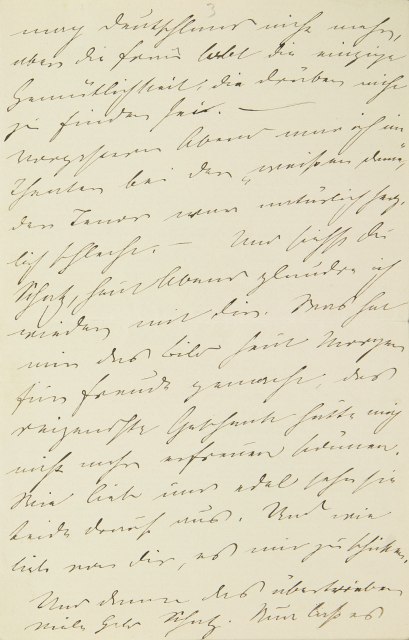 3
mag Deutschland nicht mehr,
aber die Frau lobt die einzige
Gemütlichkeit, die drüben nicht
zu finden sei. —
Vorgestern Abend war ich im
Theater bei der „weissen Dame",
der Tenor war natürlich herz-
lich schlecht. — Und siehst du
Schatz, heut Abend plaudre ich
wieder mit dir. Was hat
mir das Bild heut Morgen
für Freude gemacht, das
reizendste Geschenk hätte mich
nicht mehr erfreuen können.
Wie lieb und edel sehn sie
beide drauf aus. Und wie
lieb von dir, es mir zu schicken,
Und denn das übertrieben
viele Geld Schatz. Nun lass es